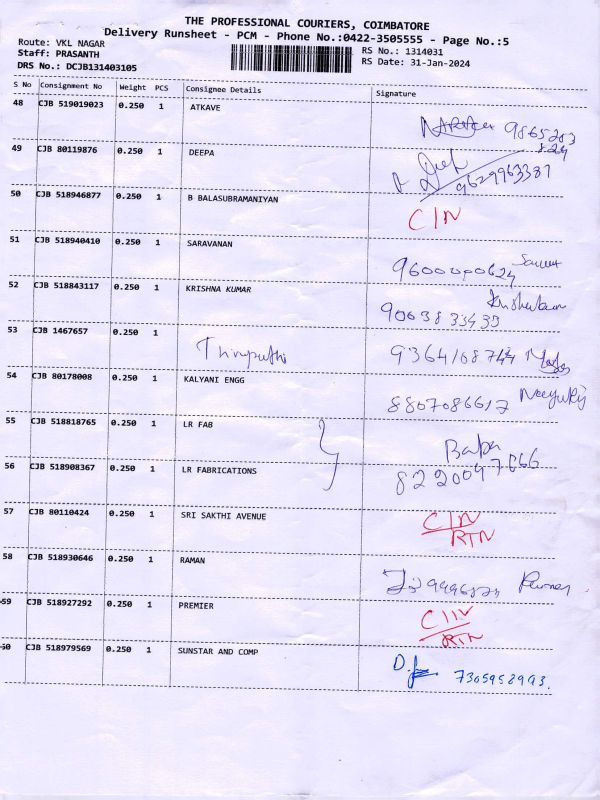 THE PROFESSIONAL COURIERS, COIMBATORE
Delivery Runsheet - PCM - Phone No.:0422-3505555 - Page No.:5
Route: VKL NAGAR
Staff: PRASANTH
DRS No.: DCJB131403105
RS No.: 1314031
RS Date: 31-Jan-2024
S No Consignment No Weight PCS Consignee Details Signature
48 CJB 519019023 0.250 1 ATKAVE
9865283
824
49 CJB 80119876 0.250 1 DEEPA
9629963381
50 CJB 518946877 0.250 1 B BALASUBRAMANIYAN C/N
51 CJB 518940410 0.250 1 SARAVANAN
52 CJB 518843117 0.250 1 KRISHNA KUMAR
9003833433
53 CJB 1467657 0.250 1
54 CJB 80178008 0.250 1 KALYANI ENGG
8807086612
55 CJB 518818765 0.250 1 LR FAB
Baba
56 CJB 518908367 0.250 1 LR FABRICATIONS
57 CJB 80110424 0.250 1 SRI SAKTHI AVENUE C/N
RTN
58 CJB 518930646 0.250 1 RAMAN
59 CJB 518927292 0.250 1 PREMIER
RTN
60 CJB 518979569 0.250 1 SUNSTAR AND COMP
7305958993.